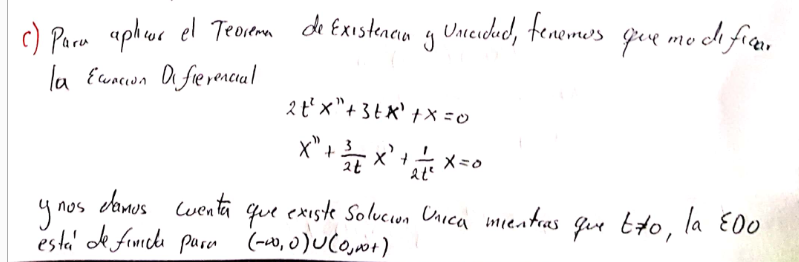 c) Para aplicar el Teorema de Existencia y Unicidad, tenemos que modificar
la Ecuacion Diferencial
2t² x'' + 3t x' + x = 0
x'' + 3/2t x' + 1/2t² x = 0
y nos damos cuenta que existe Solucion Unica mientras que t≠0, la EDO
está definida para (-∞, 0) ∪ (0, ∞+)